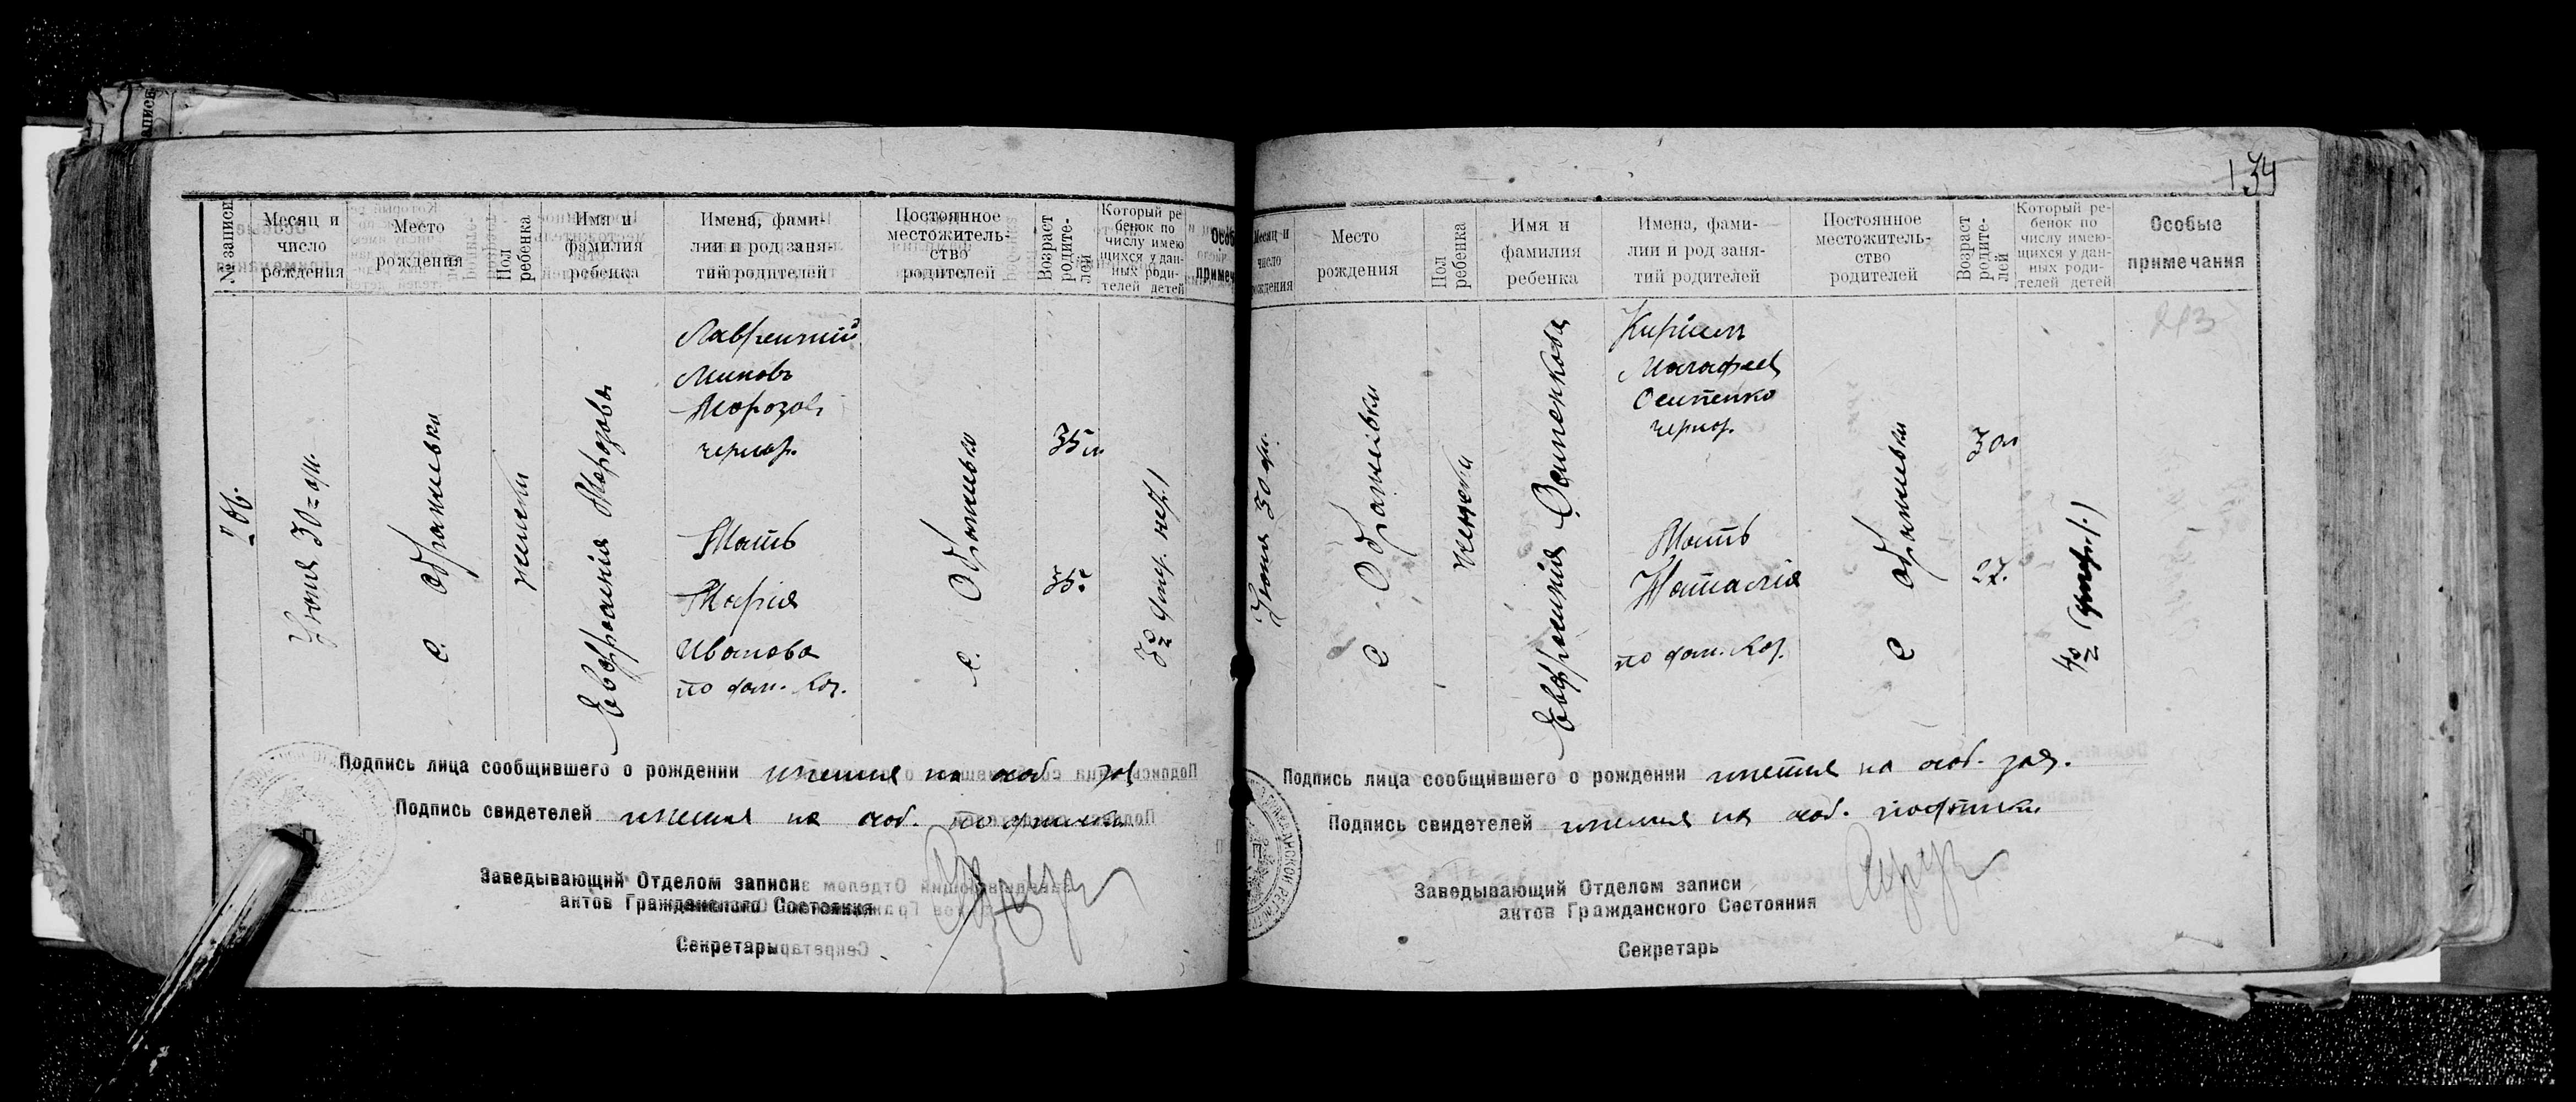 134
№ записи
Месяц и
число
рождения
Место
рождения
Пол
ребенка
Имя и
фамилия
ребенка
Имена, фами-
лии и род заня-
тий родителей
Постоянное
местожитель-
ство
родителей
Возраст
родите-
лей
Который ре
бенок по
числу имею
щихся у дан-
ных роди-
телей детей
Особ
примеч
Июня 30
с.
женски
Евфросинія Морозова
Лаврентий
Минов
Морозов
чернор.
Мать
Мария
Иванова
по фам.
с.
35
35
3
Подпись лица сообщившего о рождении имется на особ зая
Подпись свидетелей имется на особ. подписки
Заведывающий Отделом записи
актов Гражданского Состояния
Секретарь
Месяц и
число
рождения
Место
рождения
Пол
ребенка
Имя и
фамилия
ребенка
Имена, фами-
лии и род заня-
тий родителей
Постоянное
местожитель-
ство
родителей
Возраст
родите-
лей
Который ре-
бенок по
числу имею-
щихся у дан-
ных роди-
телей детей
Особые
примечания
Июня 30
с
женски
Евфросинія Осипенкова
Осипенко
чернор.
Мать
Наталия
по фам.
с
30
27.
Подпись лица сообщившего о рождении имется на особ. зая.
Подпись свидетелей имется на особ. подписки
Заведывающий Отделом записи
актов Гражданского Состояния
Секретарь